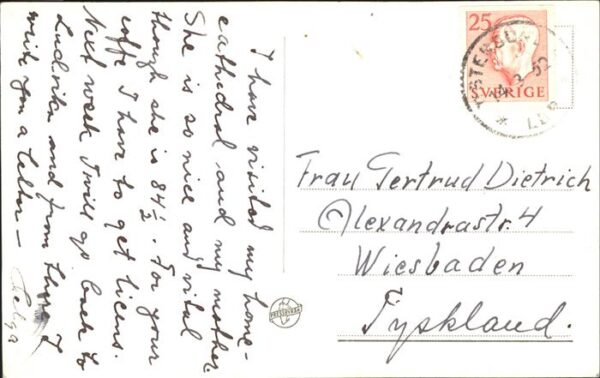 I have visited my home-
cathedral and my mother.
She is so nice and vital
though she is 84½. For your
coffe I have to get licens.
Next week I will go back to
Ludvika and from there I
write you a letter —
Helga
25
SVERIGE
Frau Gertrud Dietrich
Alexandrastr. 4
Wiesbaden
Tyskland.
PRESSBYRÅN